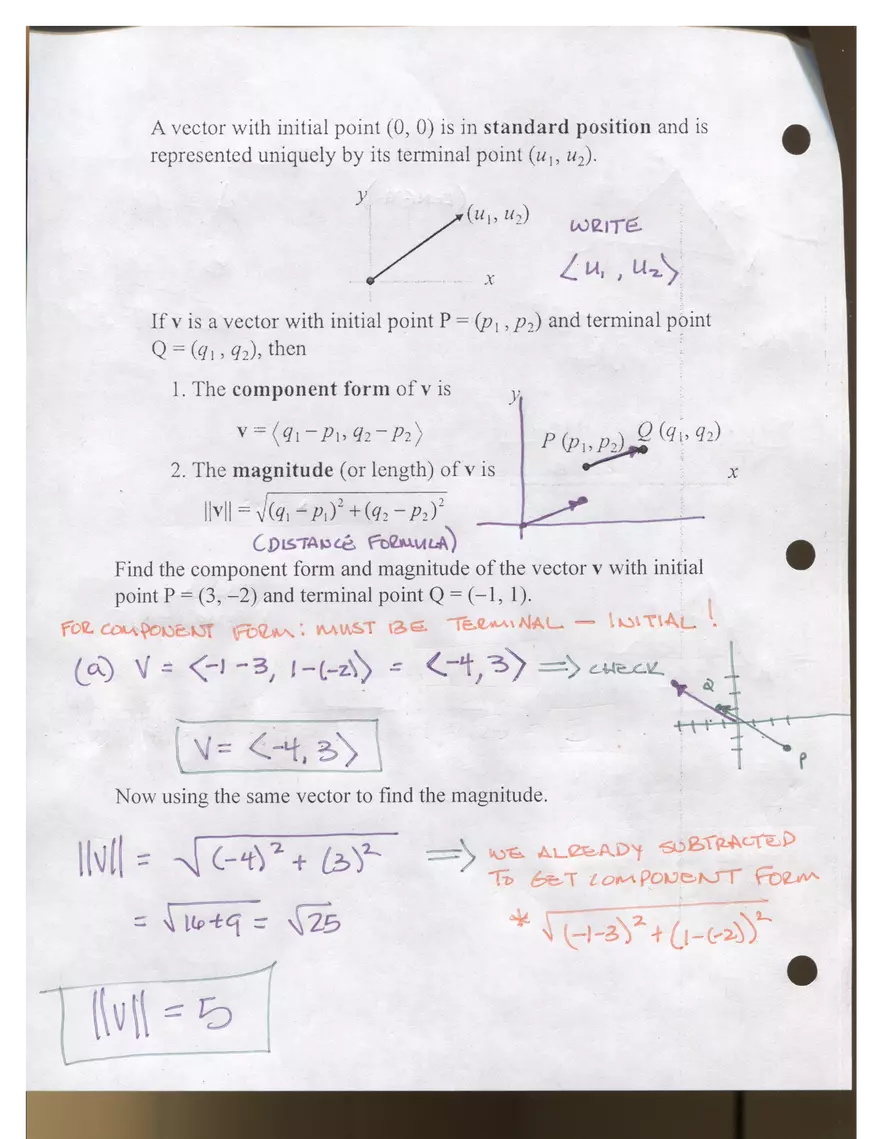 A vector with initial point (0, 0) is in standard position and is
represented uniquely by its terminal point (u₁, u₂).
y
(u₁, u₂)
x
WRITE
⟨u₁, u₂⟩
If v is a vector with initial point P = (p₁, p₂) and terminal point
Q = (q₁, q₂), then
1. The component form of v is
v = ⟨q₁ − p₁, q₂ − p₂⟩
2. The magnitude (or length) of v is
||v|| = √((q₁ − p₁)² + (q₂ − p₂)²)
y
P (p₁, p₂)
Q (q₁, q₂)
x
(DISTANCE FORMULA)
Find the component form and magnitude of the vector v with initial
point P = (3, −2) and terminal point Q = (−1, 1).
FOR COMPONENT FORM: MUST BE TERMINAL − INITIAL!
(a) V = ⟨-1-3, 1-(-2)⟩ = ⟨-4, 3⟩ ⟹ CHECK
Q
P
V = ⟨-4, 3⟩
Now using the same vector to find the magnitude.
||V|| = √((-4)² + (3)²) ⟹ WE ALREADY SUBTRACTED
TO GET COMPONENT FORM
= √16+9 = √25
* √((-1-3)² + (1-(-2))²)
||V|| = 5